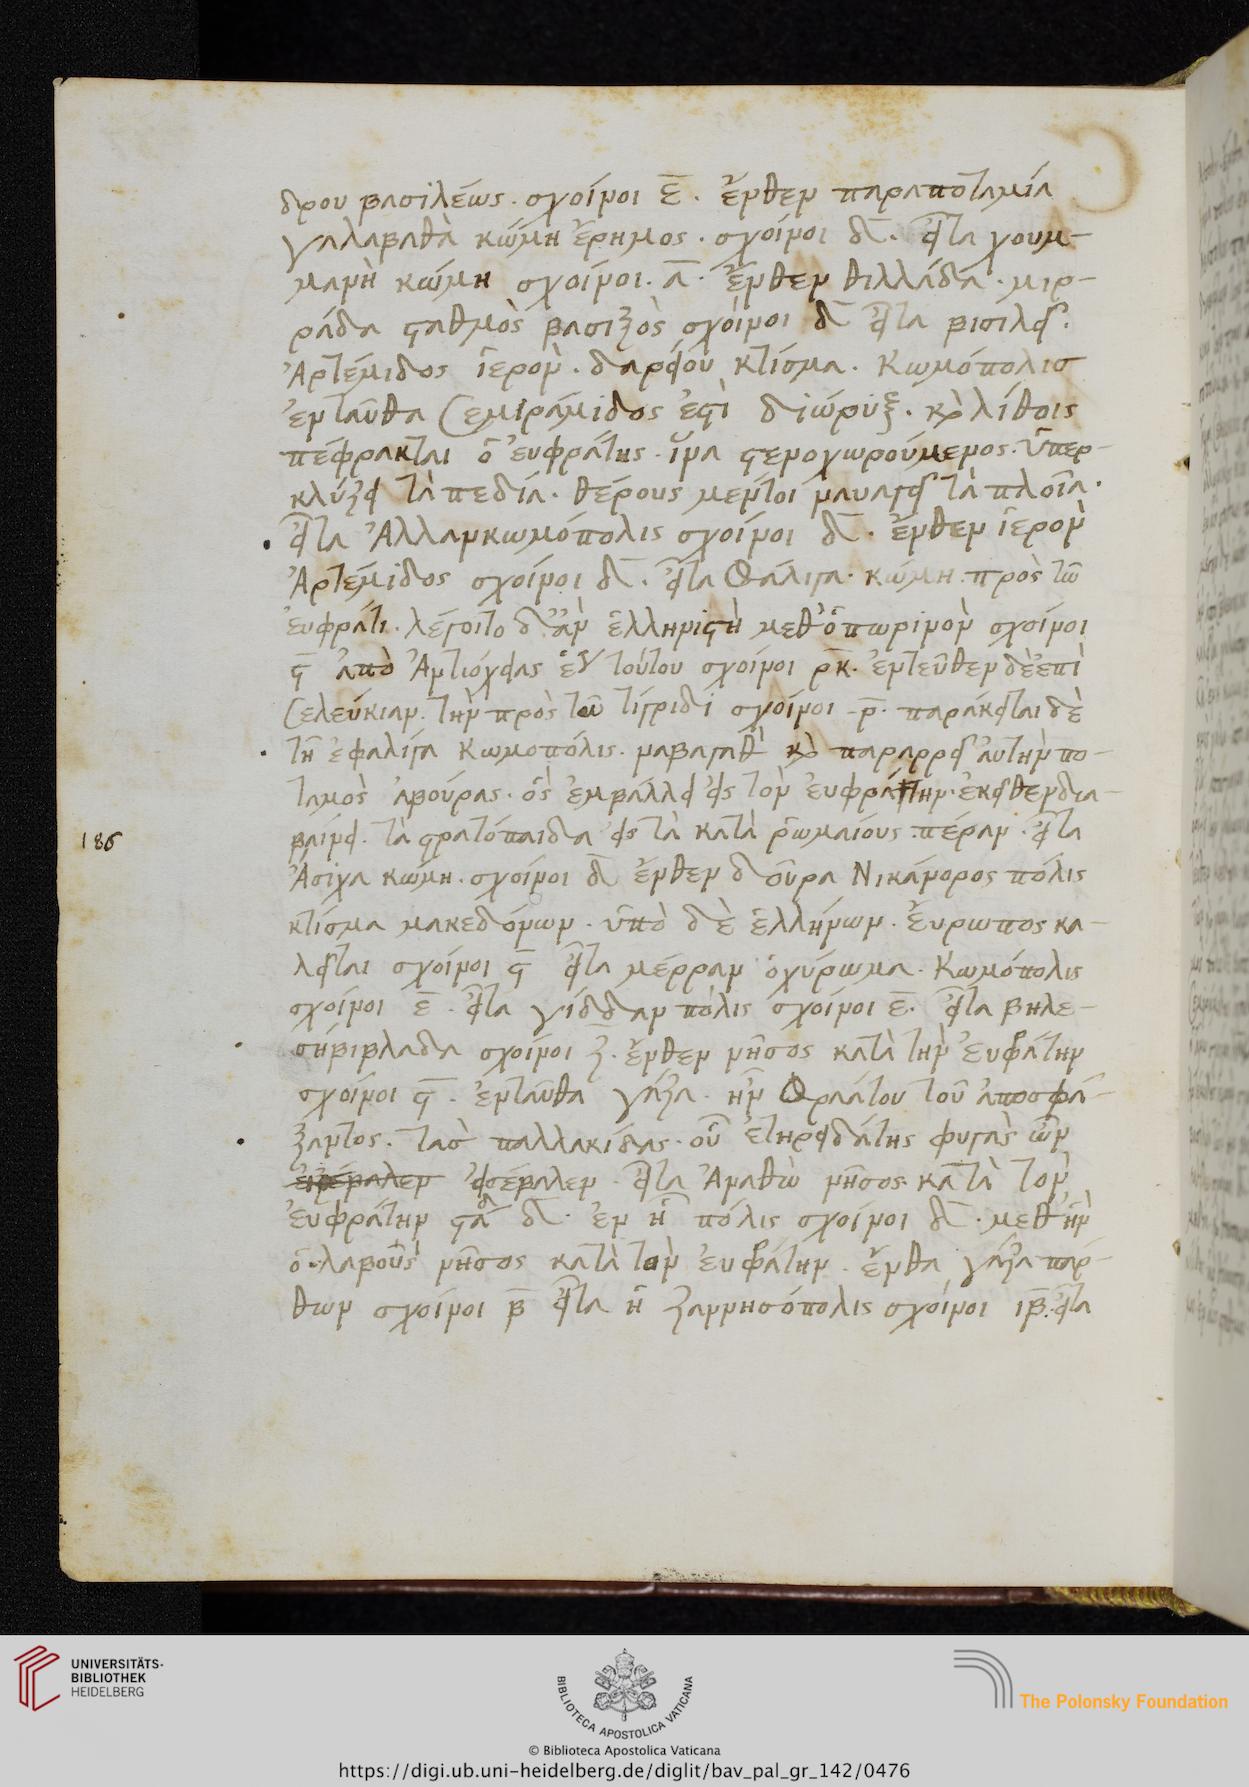 δρου βασιλέως. σχοίνοι ε̅. ἔνθεν παραποταμία
γαλαβαθὰ κώμη ἔρημος. σχοίνοι δ̅. εἶτα χουμ-
μανὴ κώμη σχοίνοι. α̅. ἔνθεν θιλλάδα. μιρ-
ράδα σταθμὸς βασιλικὸς σχοίνοι δ̅ εἶτα βισιλει.
Ἀρτέμιδος ἱερὸν. δαρείου κτίσμα. Κωμόπολισ
ἐνταῦθα Σεμιράμιδος ἐστὶ διώρυξ. καὶ λίθοις
πέφρακται ὁ ἐυφράτης. ἵνα στενοχωρούμενος. ὑπερ-
κλύζει τὰ πεδία. θέρους μέντοι ναυαγεῖ τὰ πλοῖα.
εἶτα Ἀλλανκωμόπολις σχοίνοι δ̅. ἔνθεν ἱερὸν
Ἀρτέμιδος σχοίνοι δ̅. εἶτα Φάλιγα. κώμη. πρὸς τῶ
ἐυφράτι. λέγοιτο δ' ἂν ἑλληνιστὴ μεθ' ὀπωρινὸν σχοίνοι
ϛ̅ ἀπὸ Ἀντιόχειας ἕως τούτου σχοίνοι ρ̅κ̅. ἐντεῦθεν δὲ ἐπὶ
Σελεύκιαν. τὴν πρὸς τῶ τίγριδι σχοίνοι ρ̅. παράκειται δὲ
τῆ ἐφαλίγα Κωμοπόλις. ναβαγαθ καὶ παραρρεῖ αὐτὴν πο-
ταμὸς ἀβούρας. ὃς ἐμβάλλει εἰς τὸν ἐυφράτην. ἐκεῖθεν δια-
βαίνει. τὰ στρατόπαιδα εἰς τὰ κατὰ ῥωμαίους πέραν. εἶτα
186
Ἄσιχα κώμη. σχοίνοι δ̅ ἔνθεν δοῦρα Νικάνορος πόλις
κτίσμα μακεδόνων. ὑπὸ δὲ ἑλλήνων. Ἔυρωπος κα-
λεῖται σχοίνοι ϛ̅ εἶτα μέρραν ὀχύρωμα. Κωμόπολις
σχοίνοι ε̅. εἶτα γίδδαν πόλις σχοίνοι ε̅. εἶτα βηλε-
σήβιβλαδα σχοίνοι ζ̅. ἔνθεν νῆσος κατὰ τὴν Ἐυφράτην
σχοίνοι ϛ̅. ἐνταῦθα γάζα. ἦν Φραάτου τοῦ ἀποσφά-
ξαντος. τασ παλλακίδας. οὗ ἐτηρειδάτης φυγὰς ὢν
εἰσέβαλεν. εἶτα Ἀναθὼ νῆσος κατὰ τὸν
ἐυφράτην σταδ δ̅. ἐν ἧ πόλις σχοίνοι δ̅. μεθ' ἣν
ὀλαβοῦς νῆσος κατὰ τὸν ἐυφράτην. ἔνθα γάζα παρ-
θων σχοίνοι β̅ εἶτα ἡ ζαννησόπολις σχοίνοι ιβ̅. εἶτα
UNIVERSITÄTS-
BIBLIOTHEK
HEIDELBERG
BIBLIOTECA APOSTOLICA VATICANA
The Polonsky Foundation
© Biblioteca Apostolica Vaticana
https://digi.ub.uni-heidelberg.de/diglit/bav_pal_gr_142/0476